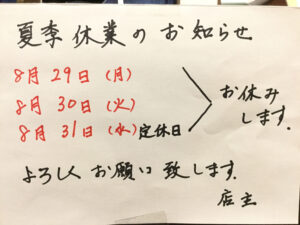 夏季休業のお知らせ
8月29日(月)
8月30日(火)
8月31日(水)定休日
お休み
します。
よろしくお願い致します。
店主